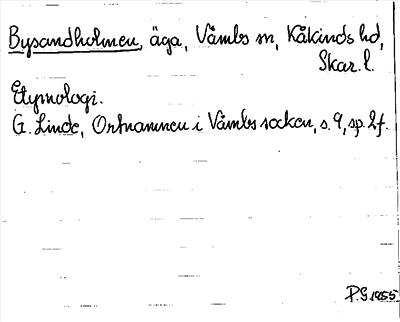 Bysandholmen, äga, Våmbs sn, Kåkinds hd,
Skar. l.
Etymologi.
G. Linde, Ortnamnen i Våmbs socken, s. 9, sp. 2 f.
P.G 1955